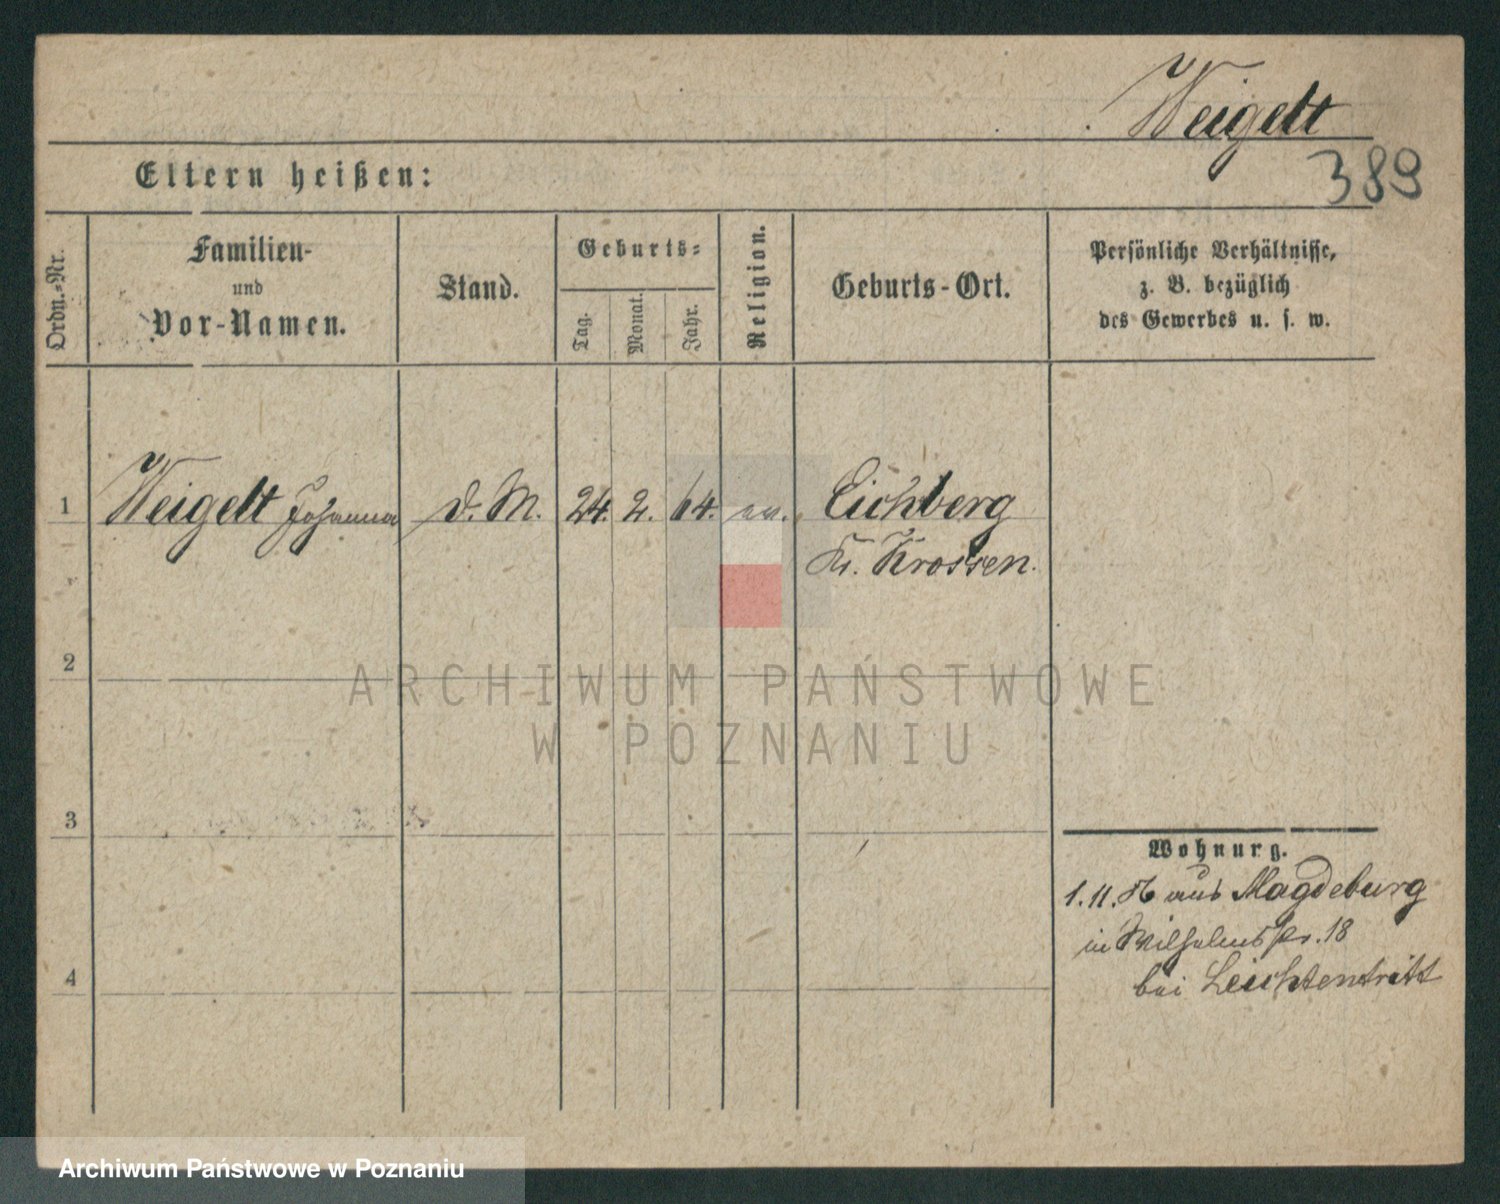 Weigelt
389
Eltern heißen:
Ordn.-Nr.
Familien-
und
Vor-Namen.
Stand.
Geburts-
Tag.
Monat.
Jahr.
Religion.
Geburts-Ort.
Persönliche Verhältnisse,
z. B. bezüglich
des Gewerbes u. s. w.
1 Weigelt Johanna d. M. 24. 2. 64. ev. Eichberg
Kr. Krossen.
2
3
4
Wohnung.
1. 11. aus Magdeburg
in Wilhelmspl. 18
bei Leichtentritt
ARCHIWUM PAŃSTWOWE
W POZNANIU
Archiwum Państwowe w Poznaniu